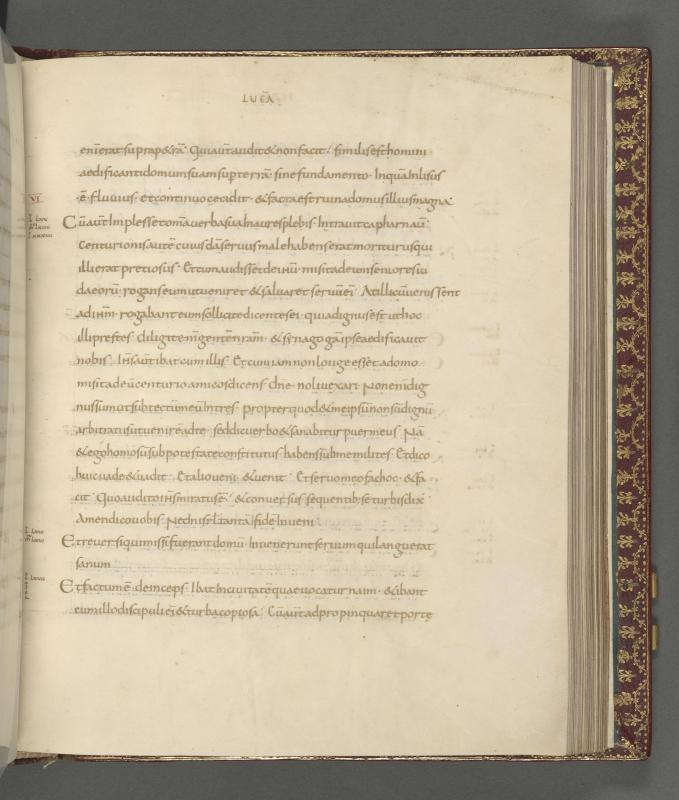 LUCĀ
eni erat supra p&rā Qui aut audit & non facit similis est homini
aedificanti domum suam sup terrā sine fundamento In quā Inlisus
ē fluuius et continuo cecidit & facta est ruina domus illius magna
VI
Cū aut Implesset omā uerba sua In aures plebis Intrauit capharnaū
Centurionis autē cuiusdā seruus male habens erat moriturus qui
illi erat pretiosus Et cum audisset de ihu misit ad eum seniores iu
daeorū rogans eum ut ueniret & saluaret seruū ei At illi cū uenissent
ad ihm rogabant eum sollicite dicentes ei quia dignus est ut hoc
illi prestes diligit eni gentem nram & synagogā ipse aedificauit
nobis Ihs aut ibat cum illis Et cum iam non longe esset a domo
misit ad eū centurio amicos dicens dne noli uexari Non eni dig
nus sum ut sub tectum meū Intres propter quod & me ipsū non sū dignū
arbitratus ut uenirē ad te sed dic uerbo & sanabitur puer meus Nā
& ego homo sū sub potestate constitutus habens sub me milites Et dico
huic uade & uadit Et alio ueni & uenit Et seruo meo fac hoc & fa
cit Quo audito ihs miratus ē & conuersus sequentib; se turbis dix
Amen dico uobis Nec In isrl tantā fidē Inueni
Et reuersi qui missi fuerant domū Inuenerunt seruum qui languerat
sanum
Et factum ē deinceps Ibat In ciuitatē quae uocatur naim & ibant
cum illo discipuli ei & turba copiosa Cū aut adpropinquaret porte